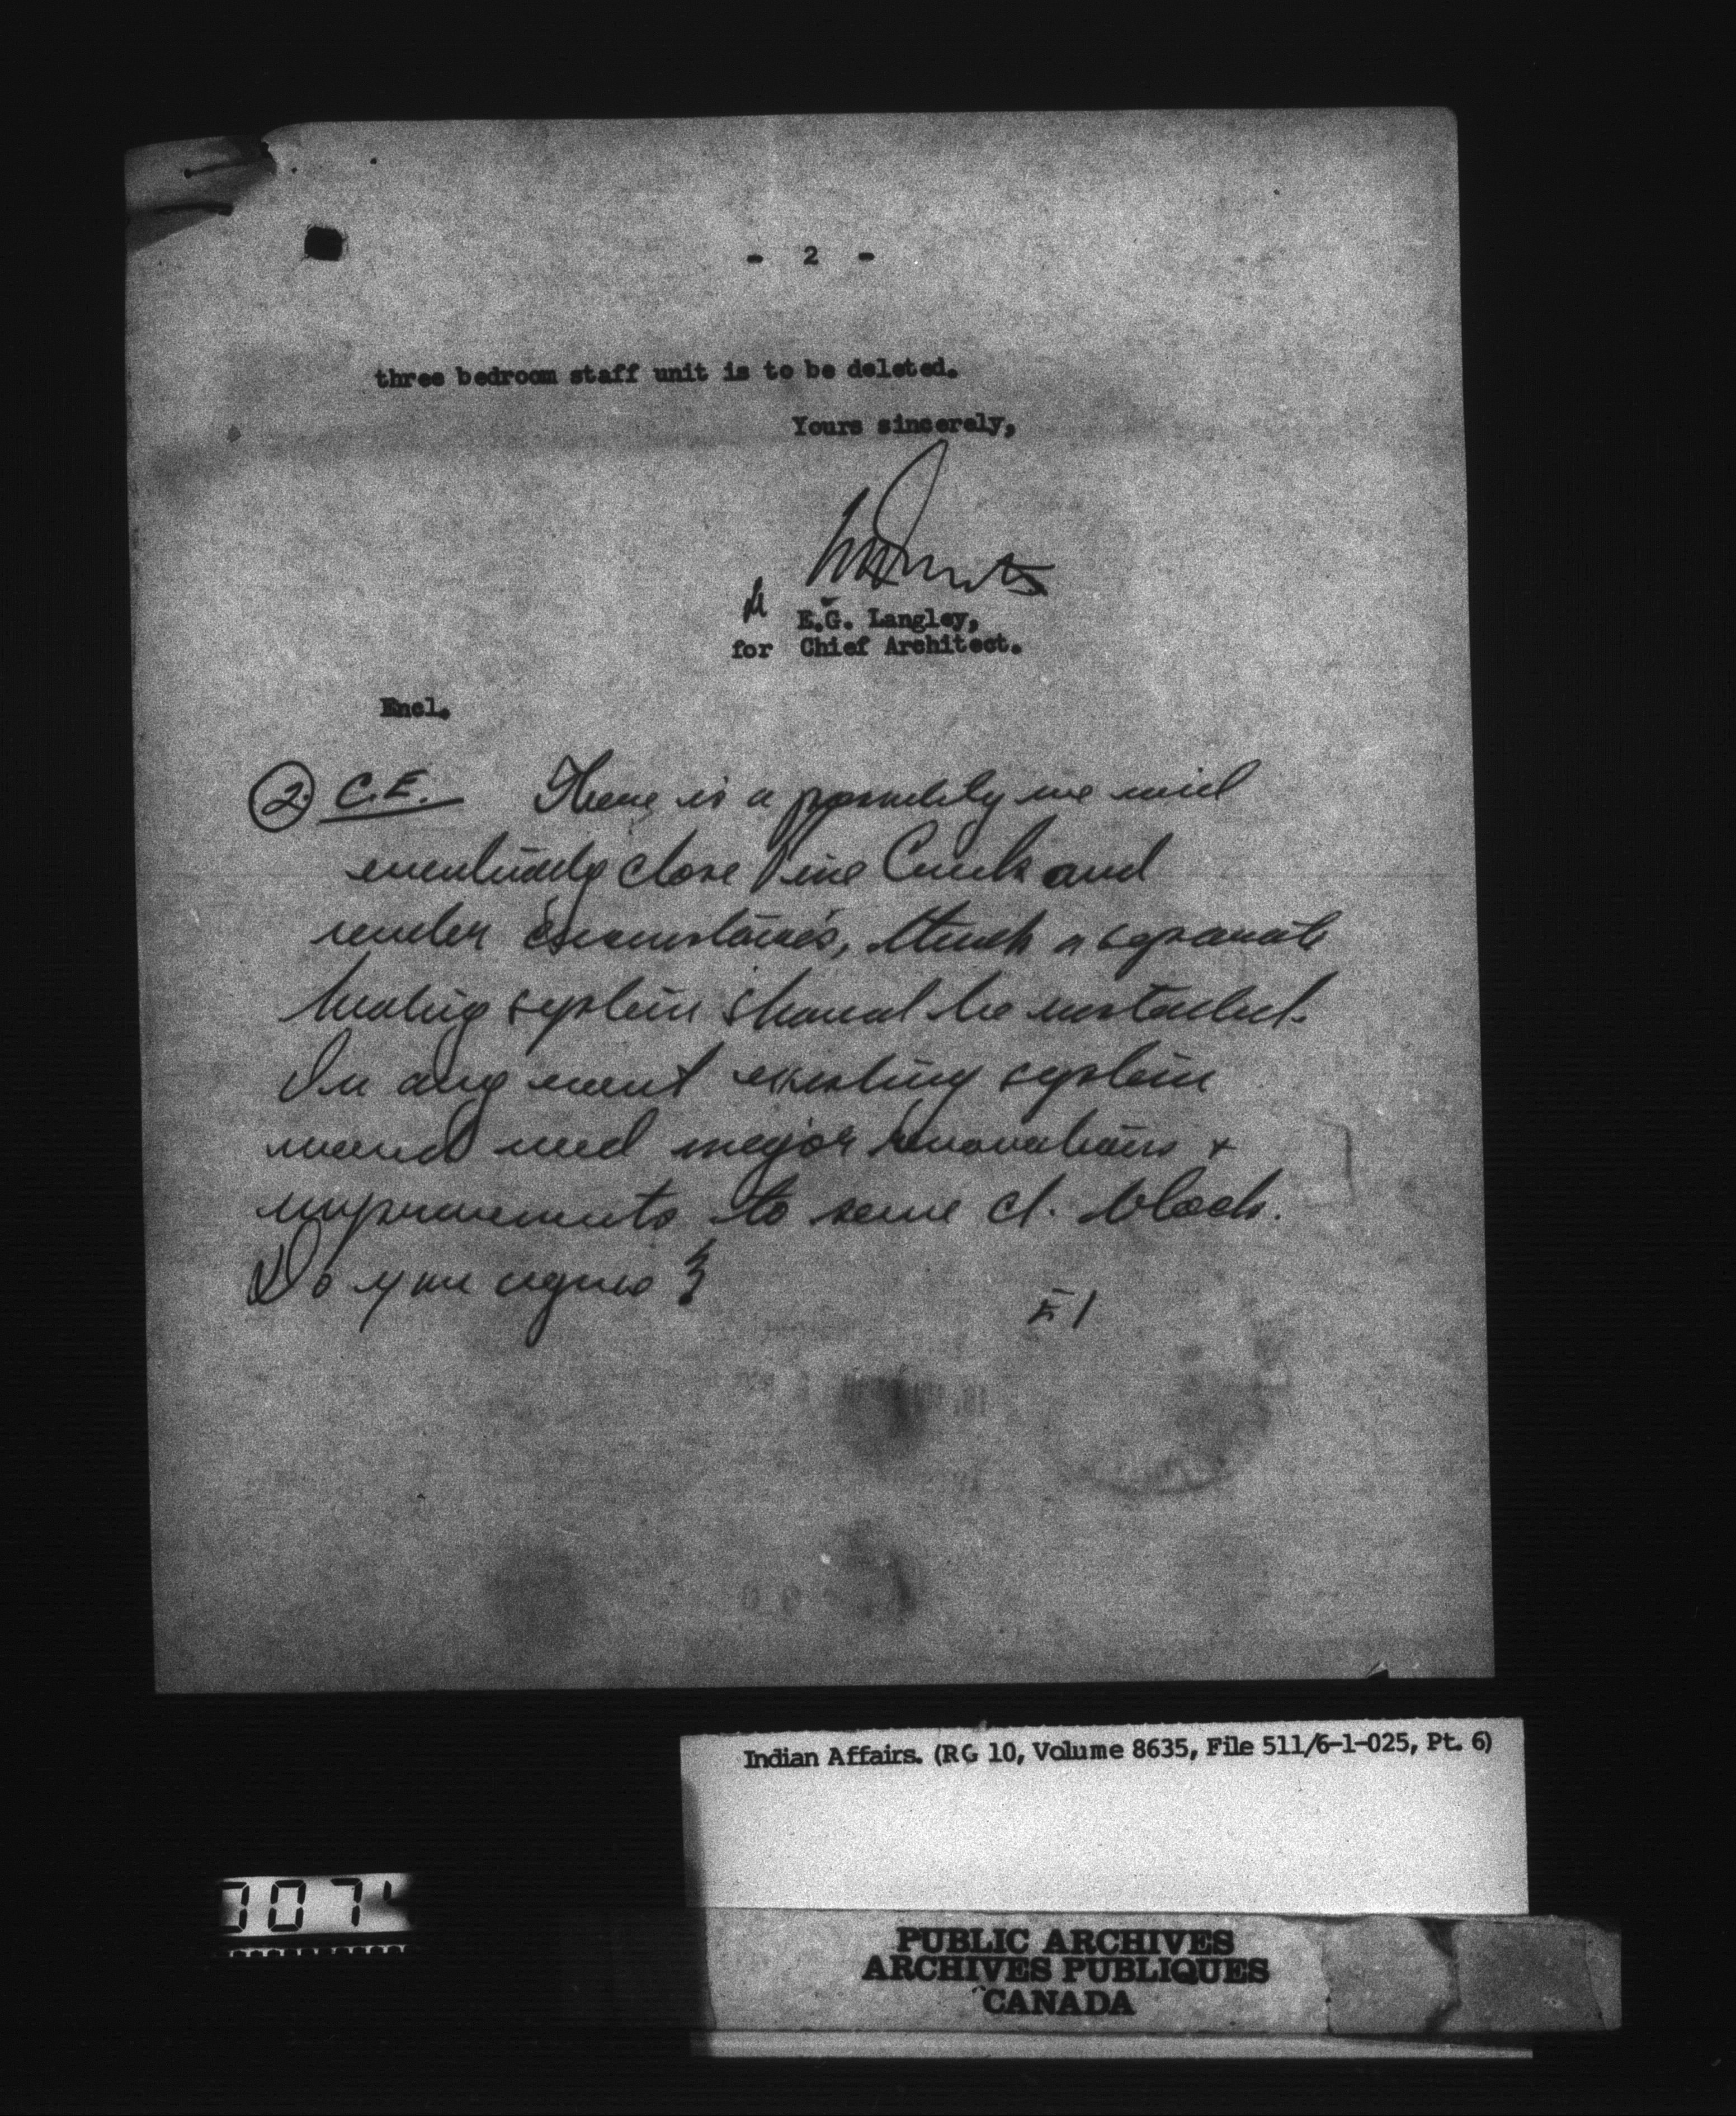 - 2 -
three bedroom staff unit is to be deleted.
Yours sincerely,
E.G. Langley,
for Chief Architect.
Encl.
2. C.E. There is a possibility we will
eventually close Pine Creek and
under circumstances, think a separate
heating system should be installed.
In any event existing system
would need major renovations +
improvements to serve cl. block.
Do you agree?
Indian Affairs. (RG 10, Volume 8635, File 511/6-1-025, Pt. 6)
007
PUBLIC ARCHIVES
ARCHIVES PUBLIQUES
CANADA